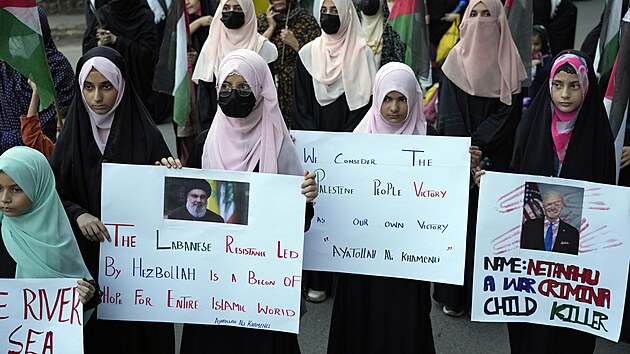 E RIVER
SEA
THE LABANESE RESISTANCE LED
BY HEZBOLLAH IS A BECON OF
HOPE FOR ENTIRE ISLAMIC WORLD
AYATOLLAH ALI KHAMENEI
WE CONSIDER THE
PALESTINE PEOPLE VICTORY
AS OUR OWN VICTORY
"AYATOLLAH AL KHAMENU"
NAME: NETANAHU
A WAR CRIMINA
CHILD KILLER